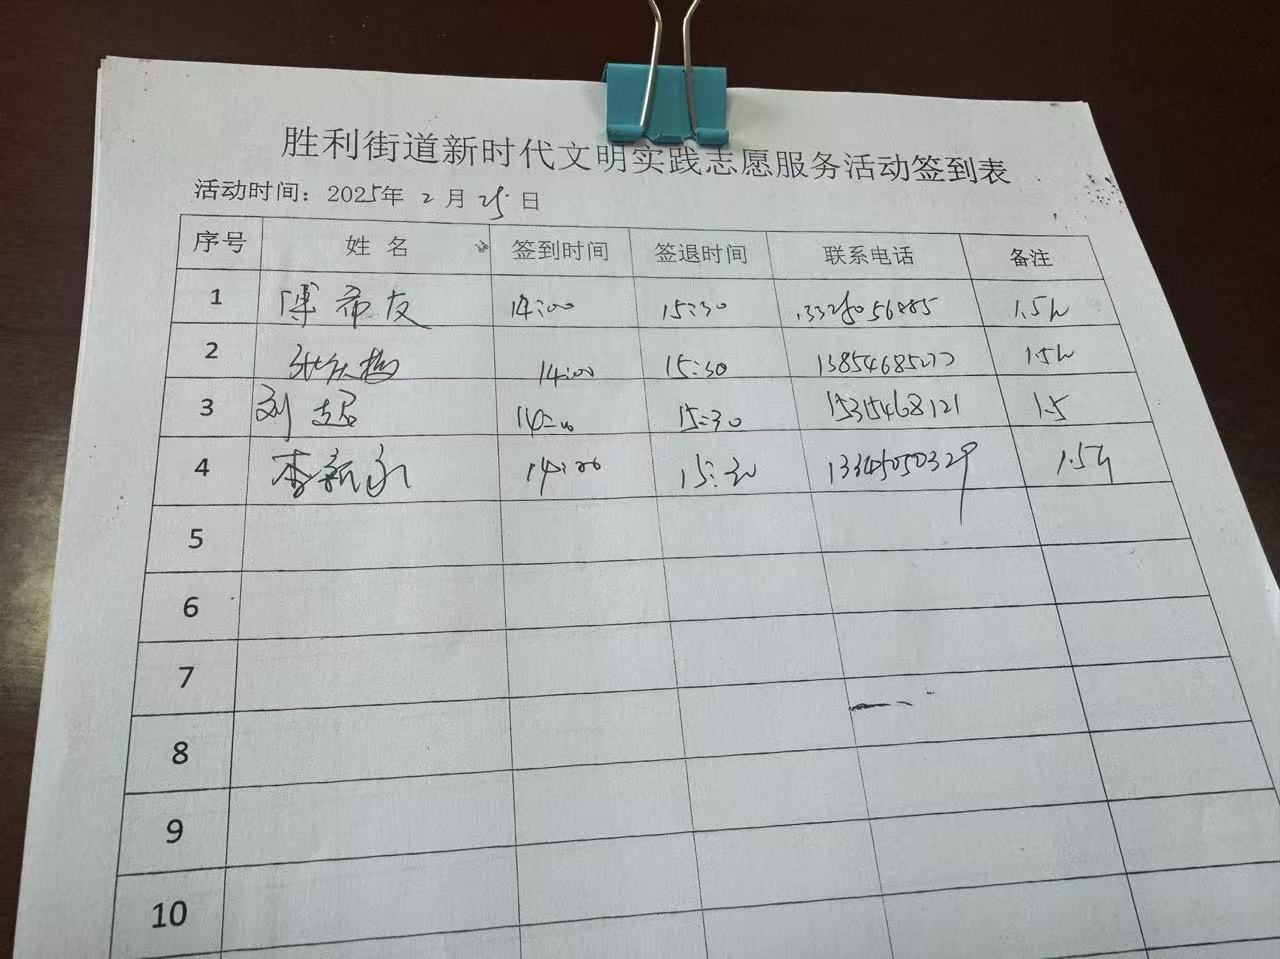 胜利街道新时代文明实践志愿服务活动签到表
活动时间：2025年 2 月 25 日
序号 姓 名 签到时间 签退时间 联系电话 备注
1 傅希友 14:00 15:30 1.5h
2 14:00 15:30 1.5h
3 刘超 14:00 15:30 15315468121 1.5
4 李新永 14:00 15:30 13345050329 1.5h
5
6
7
8
9
10